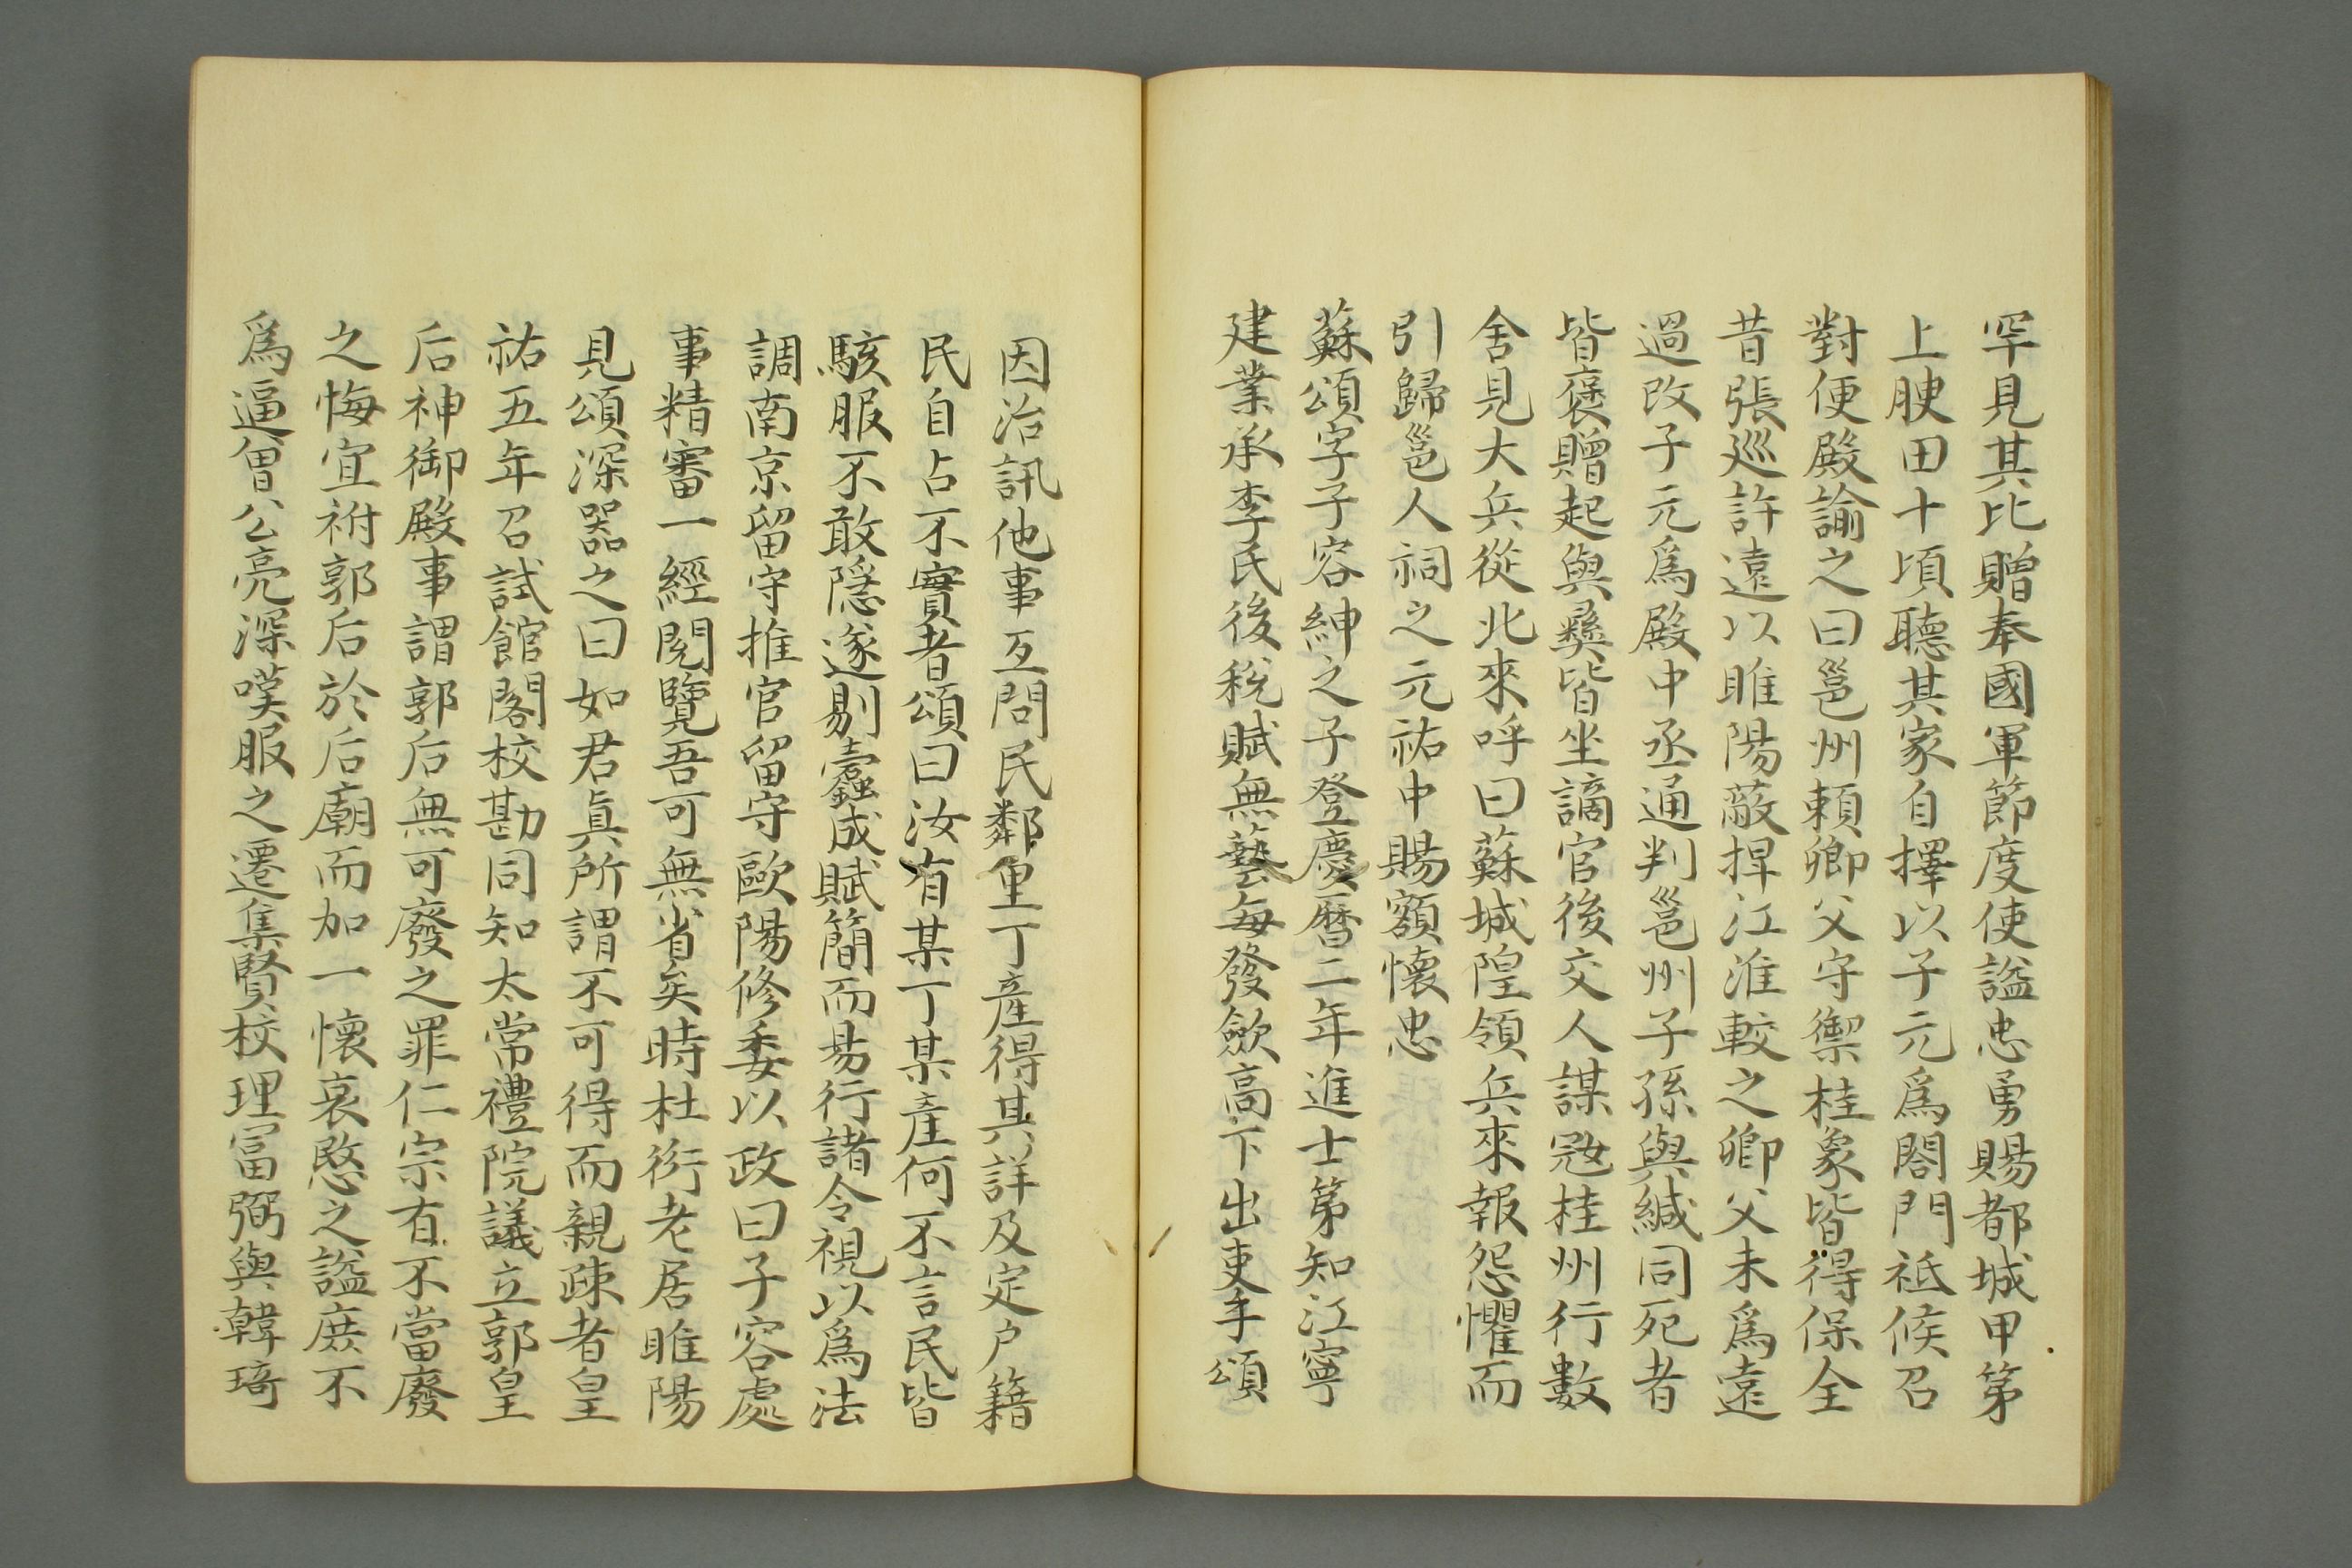 罕見其比贈奉國軍節度使諡忠勇賜都城甲第
上腴田十頃聽其家自擇以子元爲閤門祗候召
對便殿諭之曰邕州賴卿父守禦桂象皆得保全
昔張廵許遠以睢陽蔽捍江淮較之卿父未爲遠
過改子元爲殿中丞通判邕州子孫與緘同死者
皆褒贈起與彝皆坐謫官後交人謀冦桂州行數
舍見大兵從北來呼曰蘇城隍領兵來報怨懼而
引歸邕人祠之元祐中賜額懷忠
蘇頌字子容紳之子登慶曆二年進士第知江寧
建業承李氏後稅賦無藝每發歛高下出吏手頌
因治訊他事互問民鄰里丁產得其詳及定户籍
民自占不實者頌曰汝有某丁某產何不言民皆
駭服不敢隱遂剔蠧成賦簡而易行諸令視以爲法
調南京留守推官留守歐陽修委以政曰子容處
事精審一經閱覽吾可無省矣時杜衍老居睢陽
見頌深器之曰如君眞所謂不可得而親疎者皇
祐五年召試館閣校勘同知太常禮院議立郭皇
后神御殿事謂郭后無可廢之罪仁宗有不當廢
之悔宜祔郭后於后廟而加一懷哀愍之諡庶不
爲逼曾公亮深嘆服之遷集賢校理富弼與韓琦